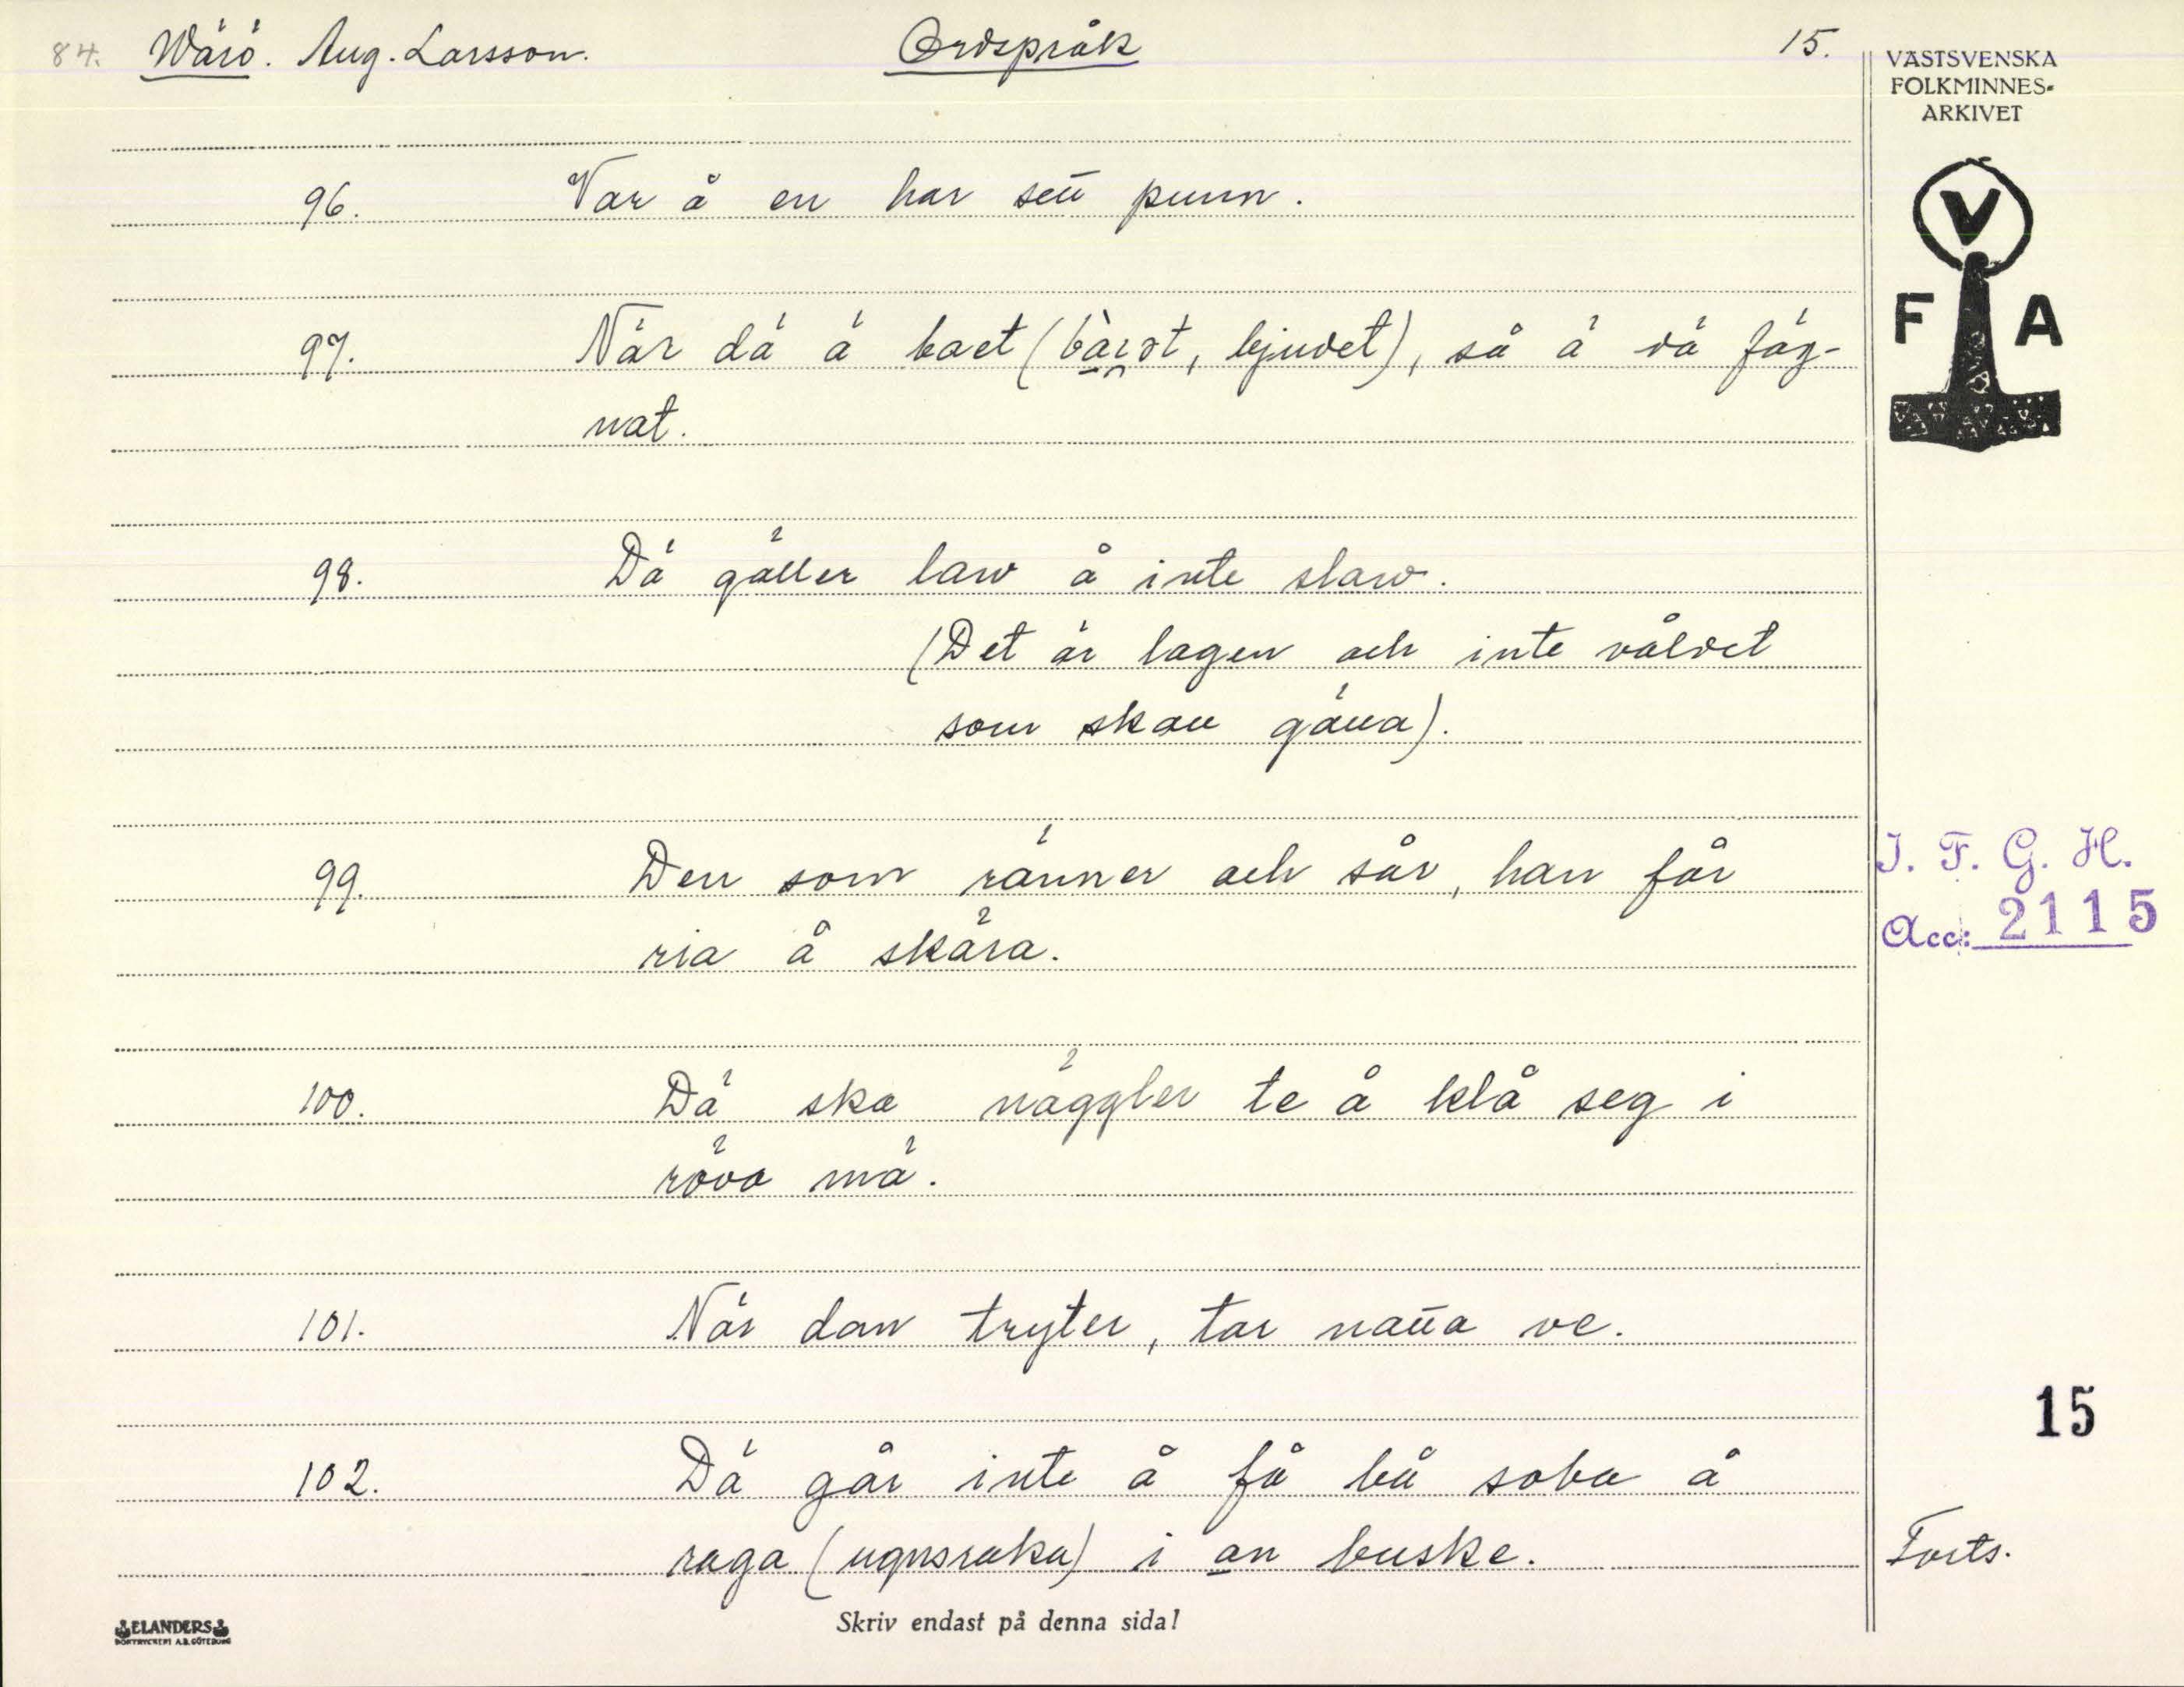 84. Wärö. Aug. Larsson. Ordspråk 15.
VÄSTSVENSKA
FOLKMINNES-
ARKIVET
V
F A
96. Var å en har sett punn.
97. När dä ä baet (        , bjudet), så ä dä fäg-
nat.
98. Dä gäller law å inte slaw.
(Det är lagen och inte våldet
som skall gälla).
99. Den som ränner och sår, han får
ria å skära.
I. F. G. H.
Acc: 2115
100. Dä ska näggler te å klå seg i
röva mä.
101. När dan tryter, tar natta ve.
15
102. Dä går inte å få bå soba å
raga (ugnsraka) i an buske.
Forts.
ELANDERS
BOKTRYCKERI A.B. GÖTEBORG
Skriv endast på denna sida!